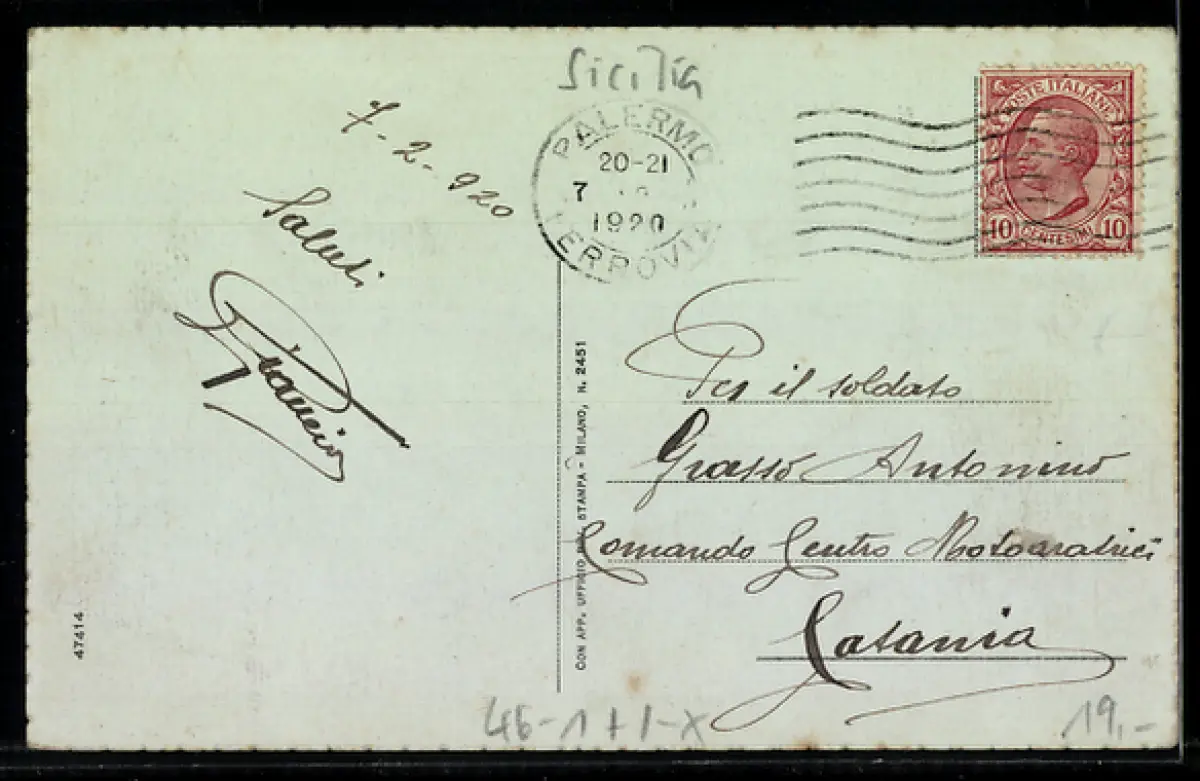 Sicilia
7-2-920
Saluti
PALERMO
20-21
7
1920
FERROVIA
POSTE ITALIANE
10 CENTESIMI 10
Per il soldato
Grasso Antonino
Comando Centro Motoaratrici
Catania
CON APP. UFFICIO STAMPA - MILANO, N. 2451
47414
46-1+1-X
19,-